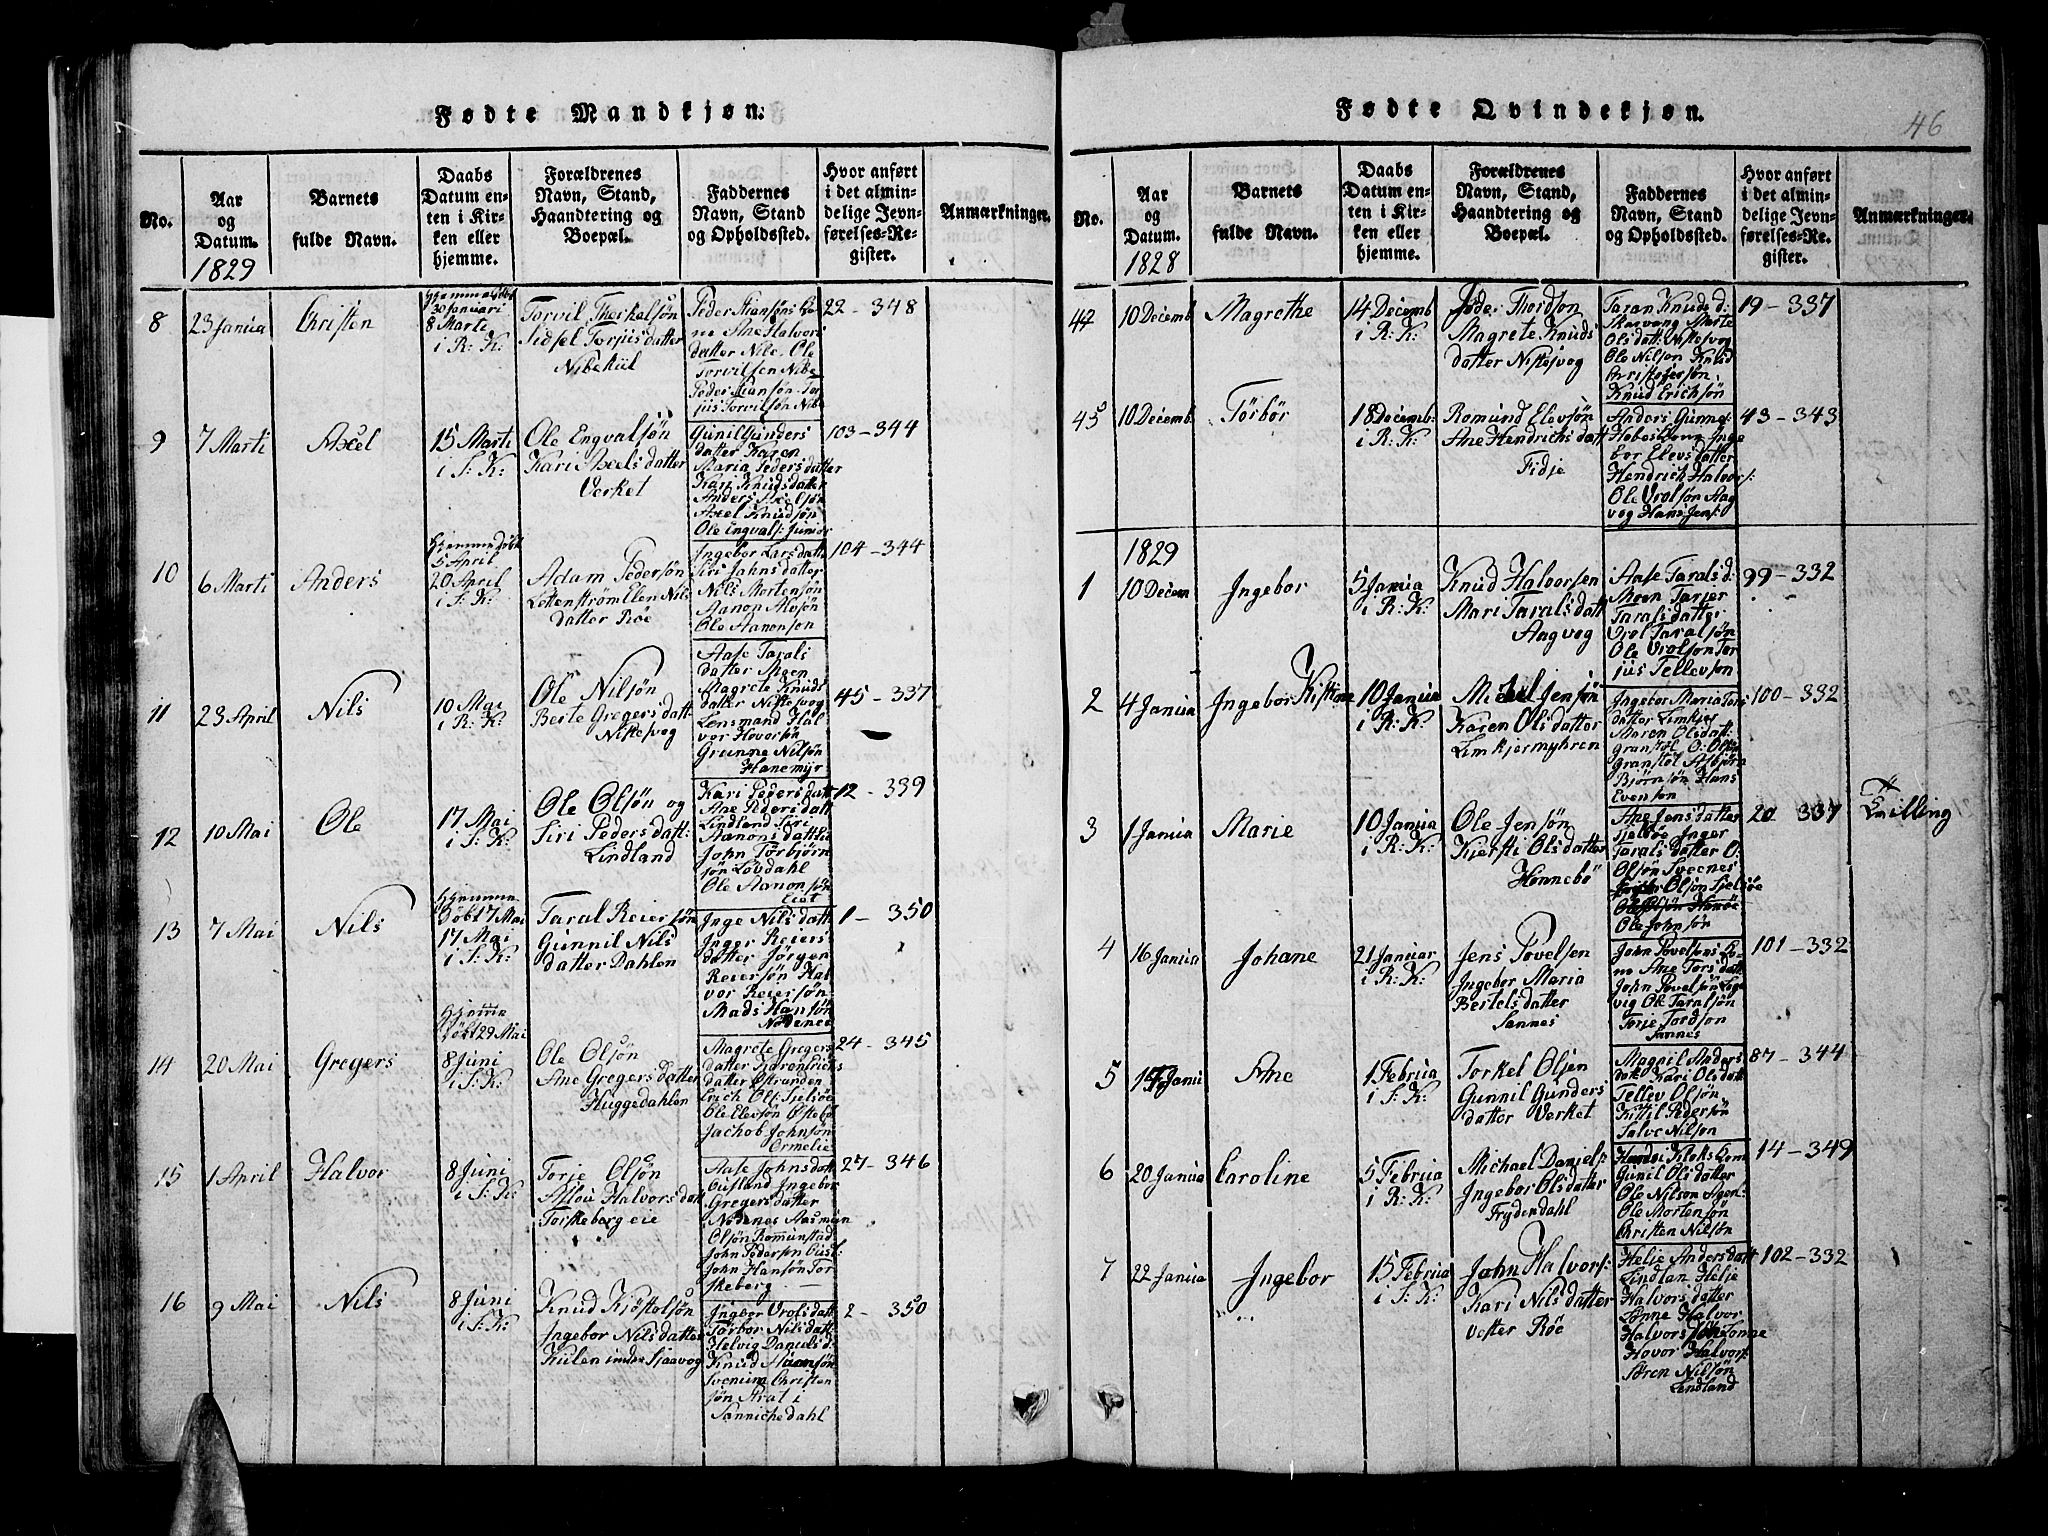 Fødte Mandkjøn.
No.
Aar
og
Datum.
1829
Barnets
fulde Navn.
Daabs
Datum en-
ten i Kir-
ken eller
hjemme.
Forældrenes
Navn, Stand,
Haandtering og
Boepæl.
Faddernes
Navn, Stand
og Opholdssted.
Hvor anført
i det almin-
delige Jevn-
førelses-Re-
gister.
Anmærkninger.
8
23 Janua
Christen
30 Januari
8 Marti
i R: K:
Torvil Therkelsøn
Sidsel Torjusdatter
Nibekiil
Ane Halvors
datter Nibe. Ole
Torvilsen Nibe
22-348
9
7 Marti
Axel
15 Marti
i S: K:
Ole Engvalsøn
Kari Axelsdatter
Verket
Gunil Gunders
datter Karen
Maria Pedersdatter
Kari Knudsdatter
Anders Axelsøn
Axel Knudsøn
Ole Engvals: Junior
103-344
10
6 Marti
Anders
Hjemmedøbt
5 April
20 April
i S: K:
Adam Pedersøn
Lottenstrøm Elen Nils
datter Røe
Ingebor Larsdatt:
Siri Jahnsdatter
Nils Mortensøn
Aanon
Ole Aanonsøn
104-344
11
23 April
Nils
10 Mai
i R: K:
Ole Nilsøn
Berte Gregersdatt:
Nistesvog
Aase Tarals
datter Moen
Magrete Knuds
datter Nistesvog
Lensmand Hal
vor Hovorsøn
Grunne Nilsøn
Hanemyr
45-337
12
10 Mai
Ole
17 Mai
i S: K:
Ole Olsøn og
Siri Pedersdatt:
Lindland
Kari Pedersdatt
Ane Pedersdatt
Lindland Siri
Aanonsdatter
John Torbjørn
søn Løvdahl
Ole Aanonsøn
Eiet
12-339
13
7 Mai
Nils
Hjemme
døbt 7 Mai
17 Mai
i S: K:
Taral Reiersøn
Gunnil Nils
datter Dahlen
Inge Nilsdatt:
Inger Reiers
datter Jørgen
Reiersøn Hal
vor Reiersøn
Mads Hansøn
Nødenes
1-350
14
20 Mai
Gregers
Hjemme
døbt 29 Mai
8 Juni
i S: K:
Ole Olsøn
Ane Gregersdatter
Huggedahlen
Magrete Gregers
datter Karen Erichs
datter Østranden
Erich Ols: Sjelsøe
Ole Elevsøn Østebø
Jachob Johnsøn
Ormelie
24-345
15
1 April
Halvor
8 Juni
i S: K:
Torje Olsøn
Halvorsdatt
Torskeberg eie
Aase Johnsdatt
Ousland Ingebor
Gregersdatter
Nødenes Aasmun
Olsøn Romunstad
John Pedersøn Ousl:
John Hansøn Tor
skeberg
27-346
16
9 Mai
Nils
8 Juni
i S: K:
Knud Kjøstolsøn
Ingebor Nilsdatter
Kiilen under Sjaavog
Ingebor Vrolsdatt
Tørbor Nilsdatt:
Helvig Daniels d:
Knud Haansøn
Svenum Christen
søn Strat i
Sannichedahl
2-350
Fødte Qvindekjøn.
46
No.
Aar
og
Datum.
1828
Barnets
fulde Navn.
Daabs
Datum en-
ten i Kir-
ken eller
hjemme.
Forældrenes
Navn, Stand,
Haandtering og
Boepæl.
Faddernes
Navn, Stand
og Opholdssted.
Hvor anført
i det almin-
delige Jevn-
førelses-Re-
gister.
Anmærkninger.
44
10 Decemb
Magrethe
14 Decemb
i R: K:
Peder Thordson
Magrete Knuds
datter Nistesvog
Taran Knuds d:
Marte
Olsdatt: Nistesvog
Ole Nilsøn Knud
Christofersøn
Knud Erichsøn
19-337
45
10 Decemb
Tørbør
18 Decemb:
i R: K:
Romund Elevsøn
Ane Hendrichsdatt
Fidje
Anders Gunne:
Inge
bor Elevsdatter
Hendrich Halvors:
Ole Vrolsøn Aag
vog Hans Jens:
43-343
1829
1
10 Decem
Ingebor
5 Janua
i R: K:
Knud Halvorsen
Mari Taralsdatt
Aagvog
Aase Tarals d:
Moen Tarjer
Taralsdatter
Vrol Taralsøn
Ole Vrolsøn Tor
jus Tellevsøn
99-332
2
4 Janua
Ingebor Kistine
10 Janua
i R: K:
Michel Jensøn
Karen Olsdatter
Limkjermyhren
Ingebor Maria Tors
datter Limkjer
Maren Olsdatt:
Granstøl O: Olsøn
Granstøl Asbjørn
Bjørnsøn Hans
Evensøn
100-332
3
1 Janua
Marie
10 Janua
i R: K:
Ole Jensøn
Kjersti Olsdatter
Hønnebø
Ane Jensdatter
Sjelsøe Inger
Taralsdatter O:
Olsøn Sveenes
Olsøn Sjelsøe
Ole Johnsøn
20 337
Tvilling
4
16 Janua
Johane
21 Januar
i R: K:
Jens Povelsen
Ingebor Maria
Bertelsdatter
Sannes
John Povelsøns Ko-
ne Ane Torsdatt
John Povelsøn Lage
vig Ole Taralsøn
Torje Tordsøn
Sannes
101-332
5
Janua
Ane
1 Februa
i S: K:
Torkel Olsen
Gunnil Gunders
datter Verket
Magnil Anders
datt: Kari Olsdatt
Tellev Olsøn
Kittil Pedersøn
Salve Nilsøn
87-344
6
20 Janua
Caroline
5 Februa
i R: K:
Michael Daniels:
Ingebor Olsdatter
Frydendahl
Gunil Olsdatter
Ole Nilson Agen:
Ole Mortensøn
Christen Nilsøn
14-349
7
22 Janua
Ingebor
15 Februa
i S: K:
John Halvors:
Kari Nilsdatter
Vester Røe
Helje Andersdatt
Lindlan Helje
Halvorsdatter
Lønne Halvor
Halvorsøn Lønne
Hovor Halvors:
Søren Nilsøn
Lindland
102-332